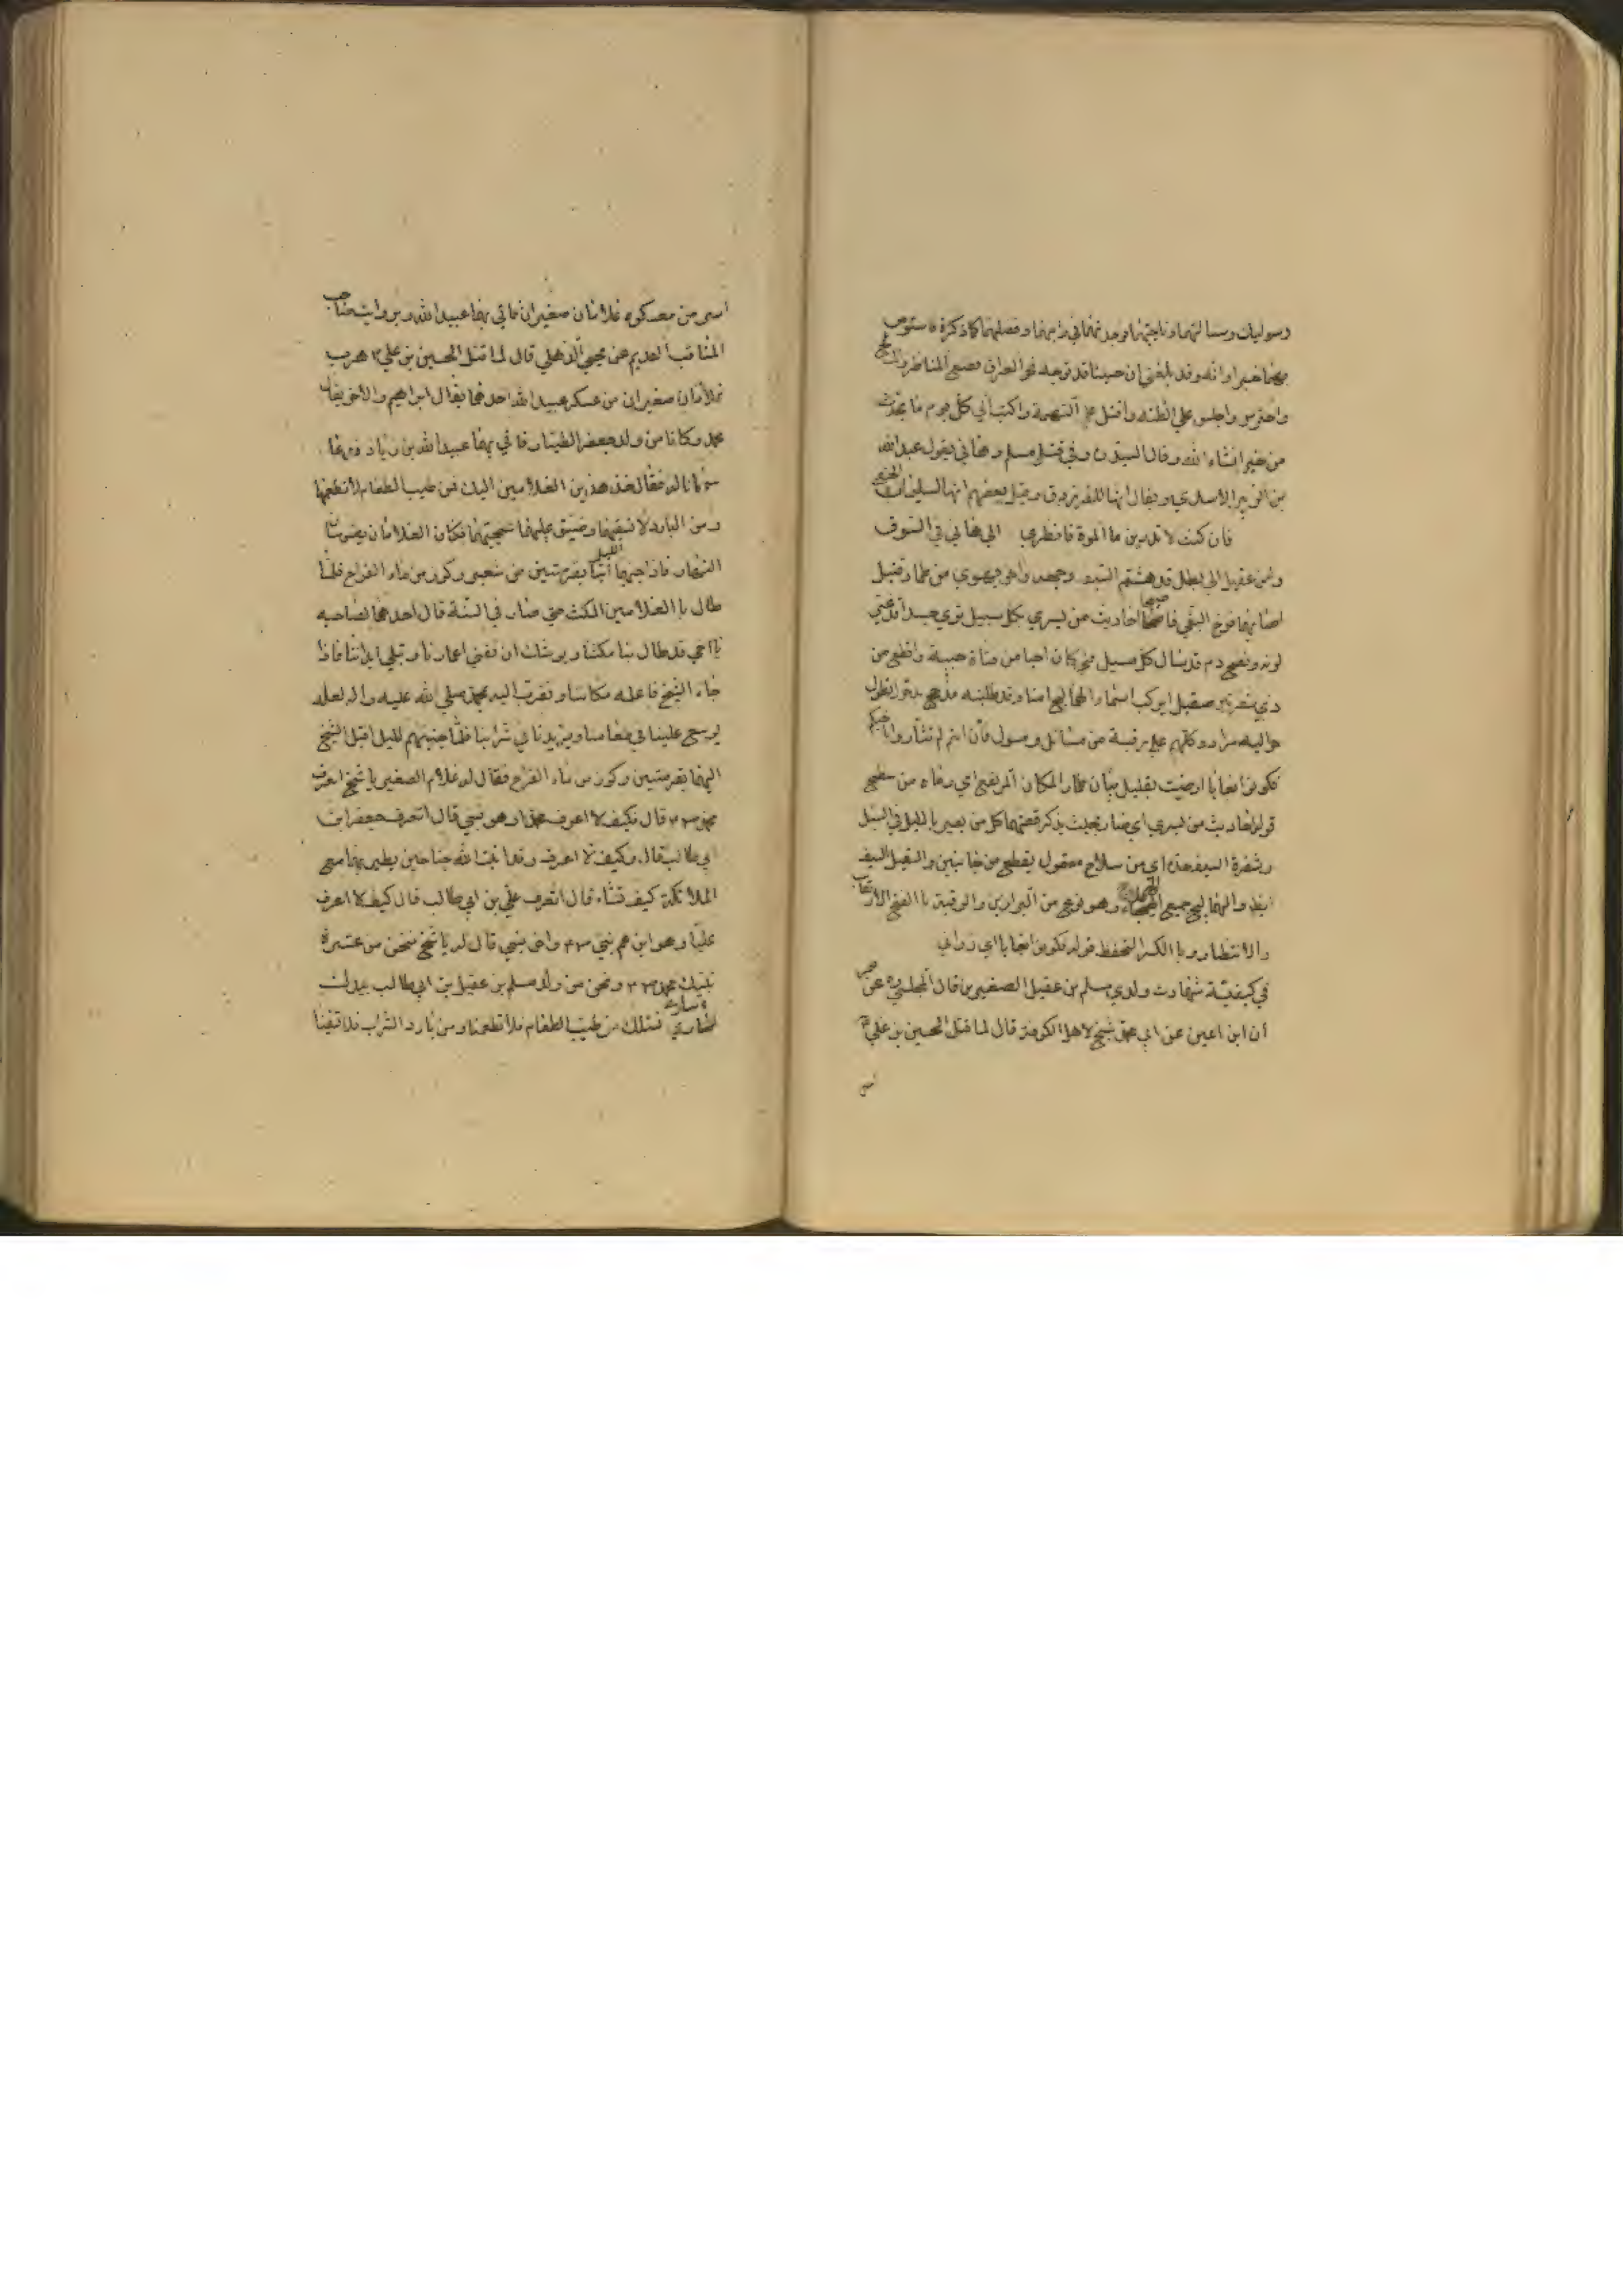 رسوليك وسالتهما وناجيتهما فوجدتهما في رايهما وفضلهما كما ذكرت فاستوص
بهما خيرا وانه وقد بلغني ان حسينا قد توجه نحو العراق فضع المناظر والمسالح
واحترس واحبس علي الظنه واقتل علي التهمة واكتب الي كل يوم ما يحدث
من خبر انشاء الله وقال السيد ره وفي قتل مسلم وهاني يقول عبد الله
بن الزبير الاسدي ويقال انها للفرزدق وقيل بعضهم انها لسليمان الحنفي
فان كنت لا تدرين ما الموت فانظري الي هاني في السوق
وابن عقيل الي بطل قد هشم السيف وجهه واخر يهوي من طمار قتيل
اصابهما فرخ البغي فاصبحا احاديث من يسري بكل سبيل تري جسدا قد غيرت
لونه ونضح دم قد سال كل مسيل فتي كان احيا من فتاة حيية واقطع من
ذي شفرتين صقيل ايركب اسماء الهماليج امنا وقد طلبته مذحج بذحول تطوف
حواليه مراد وكلهم علي رقبة من سائل ومسول فان انتم لم تثأروا باخيكم
فكونوا بغايا ارضيت بقليل بيان طمار المكان المرتفع اي رماه من سطح
قوله احاديث من يسري اي صار بحيث يذكر قصتهما كل من يسير بالليل في السبل
وشفرة السيف حده اي من سلاح مصقول يقطع من جانبين والصقيل السيف
ايضا والهماليج جمع الهملاج وهو نوع من البراذين والرقبة باالفتح الارتقاب
والانتظار وبا الكسر التحفظ قوله فكونوا بغايا اي زواني
في كيفيّة شهادت ولدي مسلم بن عقيل الصغيرين قال المجلسي ره عن
أن ابن اعين عن ابي محمد شيخ لاهل الكوفة قال لما قتل الحسين بن علي ع
اسر
اسر من معسكره غلامان صغيران فاتي بهما عبيد الله وبروايت صاحب
المناقب القديم عن يحيي الذهلي قال لما قتل الحسين بن علي ع هرب
غلامان صغيران من عسكر عبيد الله احدهما يقال ابراهيم والاخر يقال
محمد وكانا من ولد جعفر الطيار فاتي بهما عبيد الله بن زياد فدعا
سجانا له فقال خذ هذين الغلامين اليك فمن طيب الطعام لا تطعمهما
ومن البارد لا تسقهما وضيق عليهما سجنهما فكان الغلامان يصومان
النهار فاذا جنهما الليل أتيا بقرصتين من شعير وكوز من ماء القراح فلما
طال باالغلامين المكث حتي صار في السنة قال احدهما لصاحبه
يااخي قد طال بنا مكثنا ويوشك ان تفني اعمارنا وتبلي ابداننا فاذا
جاء الشيخ فاعلمه مكاننا وتقرب اليه بمحمد صلي الله عليه واله لعله
يوسع علينا في طعامنا ويزيدنا في شرابنا فلما جنهم الليل اقبل الشيخ
اليهما بقرصتين وكوز من ماء القراح فقال له غلام الصغير يا شيخ اتعرف
محمد ص قال فكيف لا اعرف محمد وهو نبيي قال اتعرف جعفر ابن
ابي طالب قال وكيف لا اعرف وقد انبت الله جناحين يطير بهما مع
الملائكة كيف تشاء قال اتعرف علي بن ابي طالب قال كيف لا اعرف
عليا وهو ابن عم نبيي ص واخي نبيي قال له يا شيخ نحن من عترة
نبيك محمد ص ونحن من ولد مسلم بن عقيل بن ابي طالب بيدك
اساري نسئلك من طيب الطعام فلا تطعمنا ومن بارد الشراب فلا تسقينا